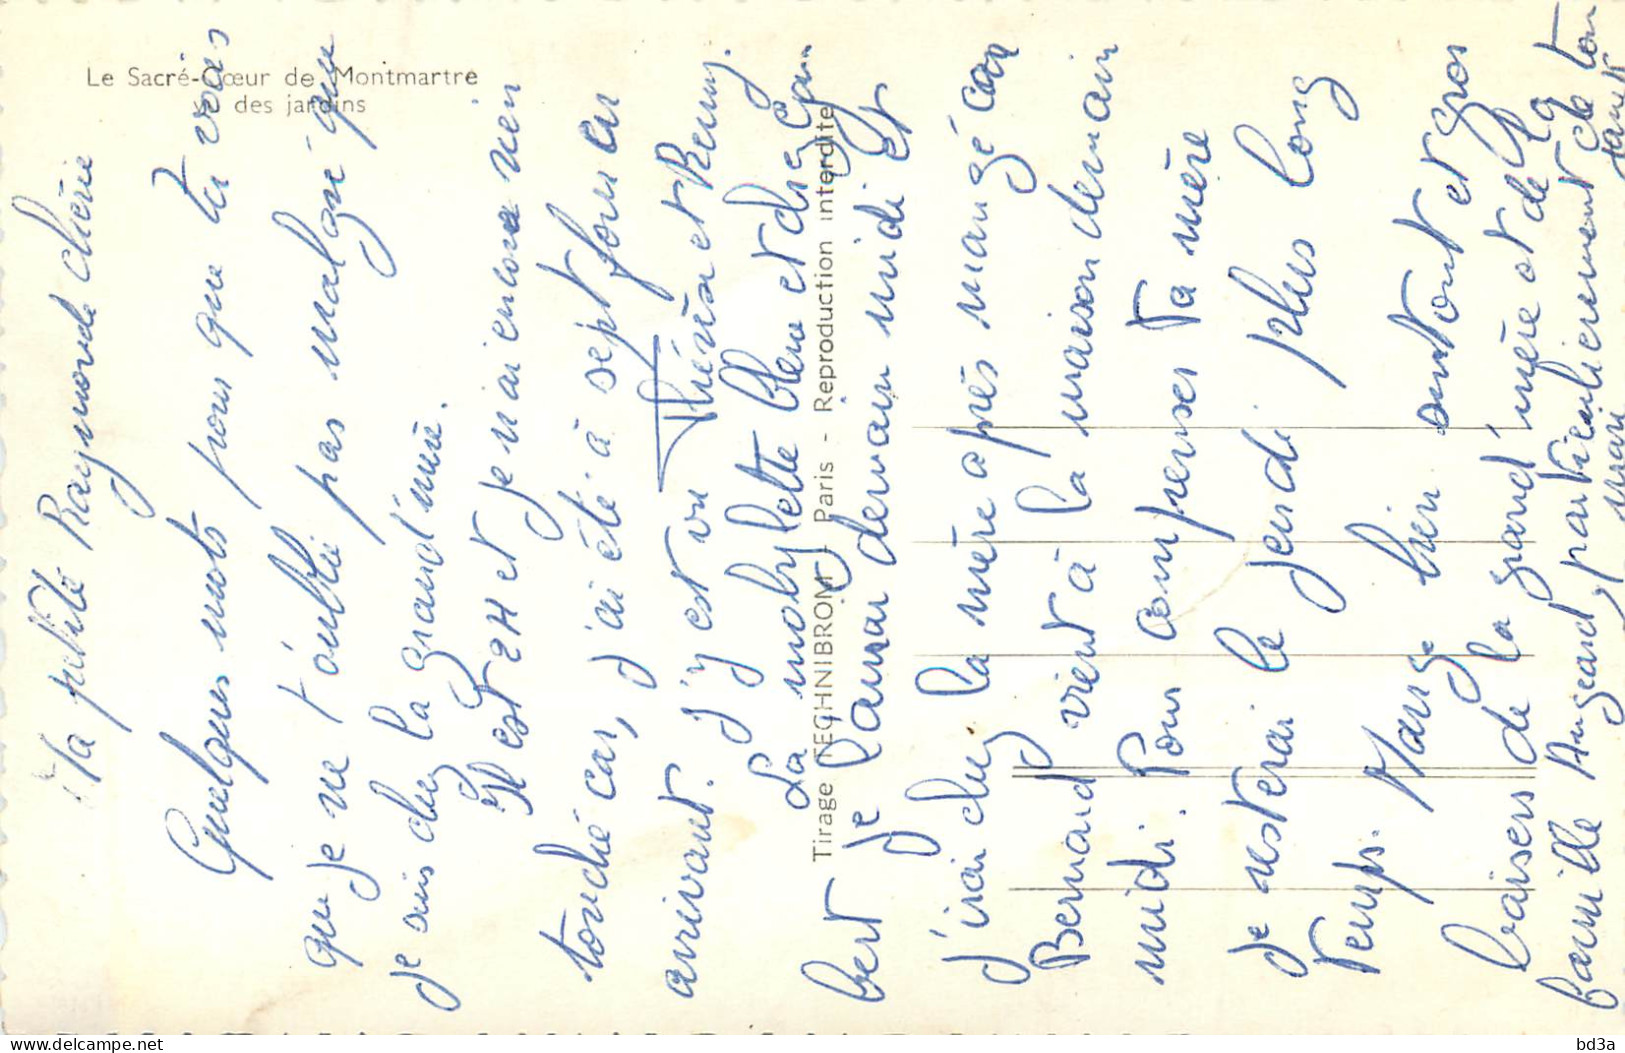 Le Sacré-Cœur de Montmartre
vu des jardins
Tirage TECHNIBROM - Paris - Reproduction interdite
Ma petite Raymonde chérie
Quelques mots pour que tu vois
que je ne t'oublie pas malgré que
je suis chez la grand'mère.
Il est 2H et je n'ai encore rien
touché car, j'ai été à sept fours en
arrivant. j'y est vu Thérèse et Remy.
La mobylette bleu et chez Gil
bert je l'aurai demain midi et
j'irai chez la mère après mangé car
Bernard vient à la maison demain
midi. Pour compenser ta mère
je resterai le jeudi plus long
temps. Mange bien surtout et gros
baisers de la grand'mère et de la
famille Augeand, particulièrement de ton
mari
delcampe.net
bd3a